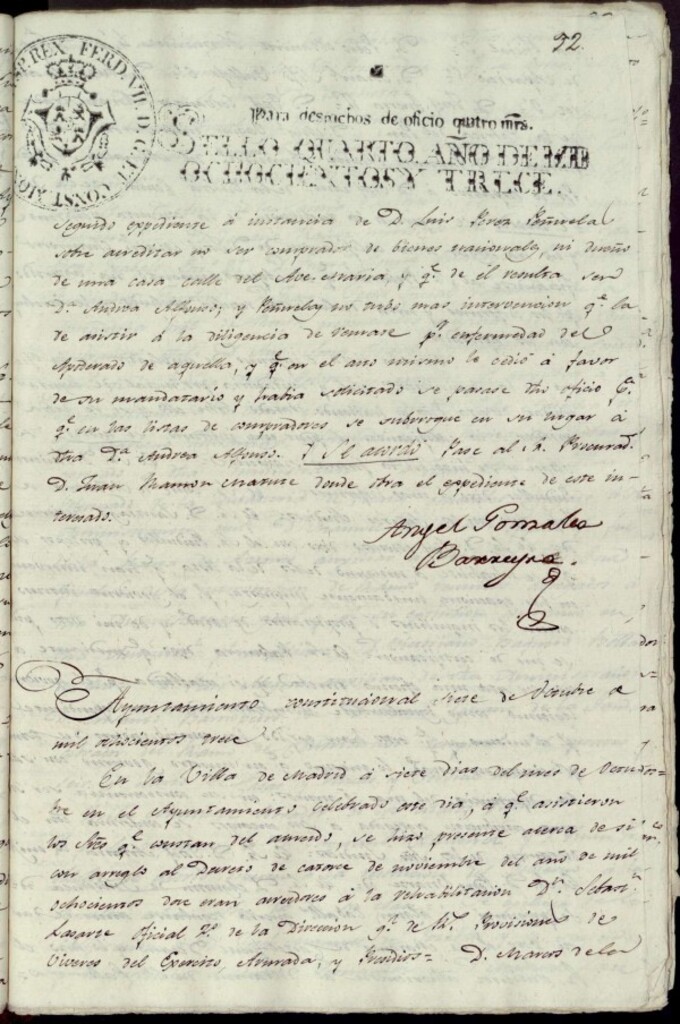 52.
HISP. REX FERD. VII. D. G. ET CONST. MON
Para despachos de oficio quatro mrs.
SELLO QUARTO, AÑO DE MIL
OCHOCIENTOS Y TRECE.
seguido expediente á instancia de D. Luis Peñuela
sobre acreditar no ser comprador de bienes nacionales, ni dueño
de una casa calle del Ave-maria, y q.e de él resulta ser
D.a Andrea Alfonso; y Peñuela no tubo mas intervencion q.e la
de asistir á la diligencia de remate p.r enfermedad del
Apoderado de aquella, y q.e en el acto mismo le cedió á favor
de su mandatario y habia solicitado se pasase dho oficio p.a
q.e en las listas de compradores se subrogue en su lugar á
dha D.a Andrea Alfonso. Y Se acordó Pase al Sr. Procurad.r
D. Juan Ramon Matute donde obra el expediente de este in-
teresado.
Angel Gonzalez
Barreyro.
Ayuntamiento constitucional siete de Octubre de
mil ochocientos trece
En la Villa de Madrid á siete dias del mes de Octu-
bre en el Ayuntamiento celebrado este dia, á q.e asistieron
los Sres q.e constan del acuerdo, se hizo presente acerca de si
con arreglo al Decreto de catorce de noviembre del año de mil
ochocientos doce eran acreedores á la rehabilitacion D.n Sebast.n
Lasarte oficial 2.o de la Direccion g.l de R.s Provisiones de
Viveres del Exercito, Armada, y Presidios = D. Marcos de la